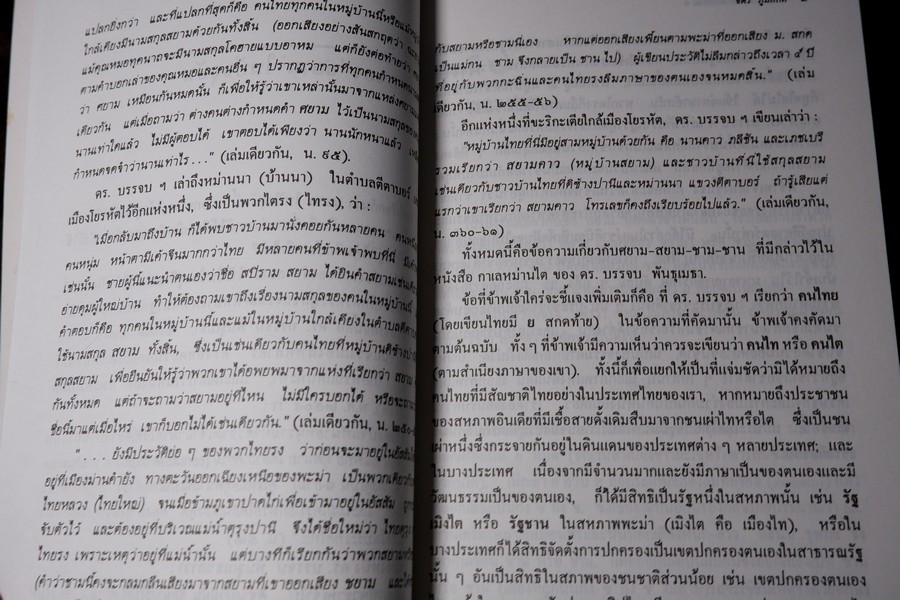 แปลกยิ่งกว่า และที่แปลกที่สุดก็คือ คนไทยทุกคนในหมู่บ้านนี้หรือแม้หมู่
ใกล้เคียงมีนามสกุลสยามด้วยกันทั้งสิ้น (ออกเสียงอย่างสันสกฤตว่า
แม้คุณหมอทุคนาถจะมีนามสกุลโคฮายแบบอาหม แต่ก็ยังต่อท้ายว่า
ตามคำบอกเล่าของคุณหมอและคนอื่น ๆ ปรากฏว่าการที่ทุกคนกำหนด
ว่า ศยาม เหมือนกันหมดนั้น ก็เพื่อให้รู้ว่าเขาเหล่านั้นมาจากแหล่ง
เดียวกัน แต่เมื่อถามว่า ต่างคนต่างกำหนดคำ ศยาม ไว้เป็นนามสกุลของ
นานเท่าใดแล้ว ไม่มีผู้ตอบได้ เขาตอบได้เพียงว่า นานนักหนาแล้ว
กำหนดจดจำว่านานเท่าไร . . ." (เล่มเดียวกัน, น. ๙๕).
ดร. บรรจบ ฯ เล่าถึงหม่านนา (บ้านนา) ในตำบลตีตาบอร์
เมืองโยรหัตไว้อีกแห่งหนึ่ง, ซึ่งเป็นพวกไตรง (ไทรง), ว่า :
"เมื่อกลับมาถึงบ้าน ก็ได้พบชาวบ้านมานั่งคอยกันหลายคน
คนหนุ่ม หน้าตามีเค้าจีนมากกว่าไทย มีหลายคนที่ข้าพเจ้าพบที่นี่
เช่นนั้น ชายผู้นี้แนะนำตนเองว่าชื่อ สปีราม สยาม ได้ยินคำสยามเช่น
อ่ายคุมผู้ใหญ่บ้าน ทำให้ต้องถามเขาถึงเรื่องนามสกุลของคนในหมู่บ้านนี้
คำตอบก็คือ ทุกคนในหมู่บ้านนี้และแม้ในหมู่บ้านใกล้เคียงในตำบล
ใช้นามสกุล สยาม ทั้งสิ้น, ซึ่งเป็นเช่นเดียวกับคนไทยที่หมู่บ้านดิช้าง
สกุลสยาม เพื่อยืนยันให้รู้ว่าพวกเขาได้อพยพมาจากแห่งที่เรียกว่า สยาม
กันทั้งหมด แต่ถ้าจะถามว่าสยามอยู่ที่ไหน ไม่มีใครบอกได้ หรือจะถาม
ชื่อนี้มาแต่เมื่อไหร่ เขาก็บอกไม่ได้เช่นเดียวกัน." (เล่มเดียวกัน, น.
" . . . ยังมีประวัติย่อ ๆ ของพวกไทยรง ว่าก่อนจะมาอยู่ในอัสสัม
อยู่ที่เมืองม่านคำยัง ทางตะวันออกเฉียงเหนือของพะม่า เป็นพวกเดียว
ไทยหลวง (ไทยใหญ่) จนเมื่อข้ามภูเขาปาดไก่เพื่อเข้ามาอยู่ในอัสสัม
จับตัวไว้ และต้องอยู่ที่บริเวณแม่น้ำตุรุงปานี จึงได้ชื่อใหม่ว่า ไทยตุรุง
ไทยรง เพราะเหตุว่าอยู่ที่แม่น้ำนั้น แต่บางทีก็เรียกกันว่าพวกสยาม
(คำว่าชามนี้คงจะกลมกลืนเสียงมาจากสยามที่เขาออกเสียง ชยาม
กับสยามหรือชามนี่เอง หากแต่ออกเสียงเพี้ยนตามพะม่าที่ออกเสียง ม. สกด
เป็นแม่กน ชาม จึงกลายเป็น ชาน ไป) ผู้เขียนประวัติไม่ลืมกล่าวถึงเวลา ๔ ปี
ที่อยู่กับพวกกะฉิ่นและคนไทยรงลืมภาษาของตนเองจนหมดสิ้น." (เล่ม
เดียวกัน, น. ๒๕๕-๕๖)
อีกแห่งหนึ่งที่ขะริกะเตียใกล้เมืองโยรหัต, ดร. บรรจบ ฯ เขียนเล่าว่า :
"หมู่บ้านไทยที่นี่มีอยู่สามหมู่บ้านด้วยกัน คือ นานคาว ภลิชัน และเภชเบริ
รวมเรียกว่า สยามคาว (หมู่บ้านสยาม) และชาวบ้านที่นี่ใช้สกุลสยาม
เช่นเดียวกับชาวบ้านไทยที่ดิช้างปานีและหม่านนา แขวงตีตาบอร์ ถ้ารู้เสียแต่
แรกว่าเขาเรียกว่า สยามคาว โทรเลขก็คงถึงเรียบร้อยไปแล้ว." (เล่มเดียวกัน,
น. ๓๖๐-๖๑)
ทั้งหมดนี้คือข้อความเกี่ยวกับศยาม-สยาม-ชาม-ชาน ที่มีกล่าวไว้ใน
หนังสือ กาเลหม่านไต ของ ดร. บรรจบ พันธุเมธา.
ข้อที่ข้าพเจ้าใคร่จะชี้แจงเพิ่มเติมก็คือ ที่ ดร. บรรจบ ฯ เรียกว่า คนไทย
(โดยเขียนไทยมี ย สกดท้าย) ในข้อความที่คัดมานั้น ข้าพเจ้าคงคัดมา
ตามต้นฉบับ ทั้ง ๆ ที่ข้าพเจ้ามีความเห็นว่าควรจะเขียนว่า คนไท หรือ คนไต
(ตามสำเนียงภาษาของเขา). ทั้งนี้ก็เพื่อแยกให้เป็นที่แจ่มชัดว่ามิได้หมายถึง
คนไทยที่มีสัญชาติไทยอย่างในประเทศไทยของเรา, หากหมายถึงประชาชน
ของสหภาพอินเดียที่มีเชื้อสายดั้งเดิมสืบมาจากชนเผ่าไทหรือไต ซึ่งเป็นชน
เผ่าหนึ่งซึ่งกระจายกันอยู่ในดินแดนของประเทศต่าง ๆ หลายประเทศ; และ
ในบางประเทศ เนื่องจากมีจำนวนมากและยังมีภาษาเป็นของตนเองและมี
วัฒนธรรมเป็นของตนเอง, ก็ได้มีสิทธิเป็นรัฐหนึ่งในสหภาพนั้น เช่น รัฐ
เมิงไต หรือ รัฐชาน ในสหภาพพะม่า (เมิงไต คือ เมืองไท), หรือใน
บางประเทศก็ได้สิทธิจัดตั้งการปกครองเป็นเขตปกครองตนเองในสาธารณรัฐ
นั้น ๆ อันเป็นสิทธิในสภาพของชนชาติส่วนน้อย เช่น เขตปกครองตนเอง